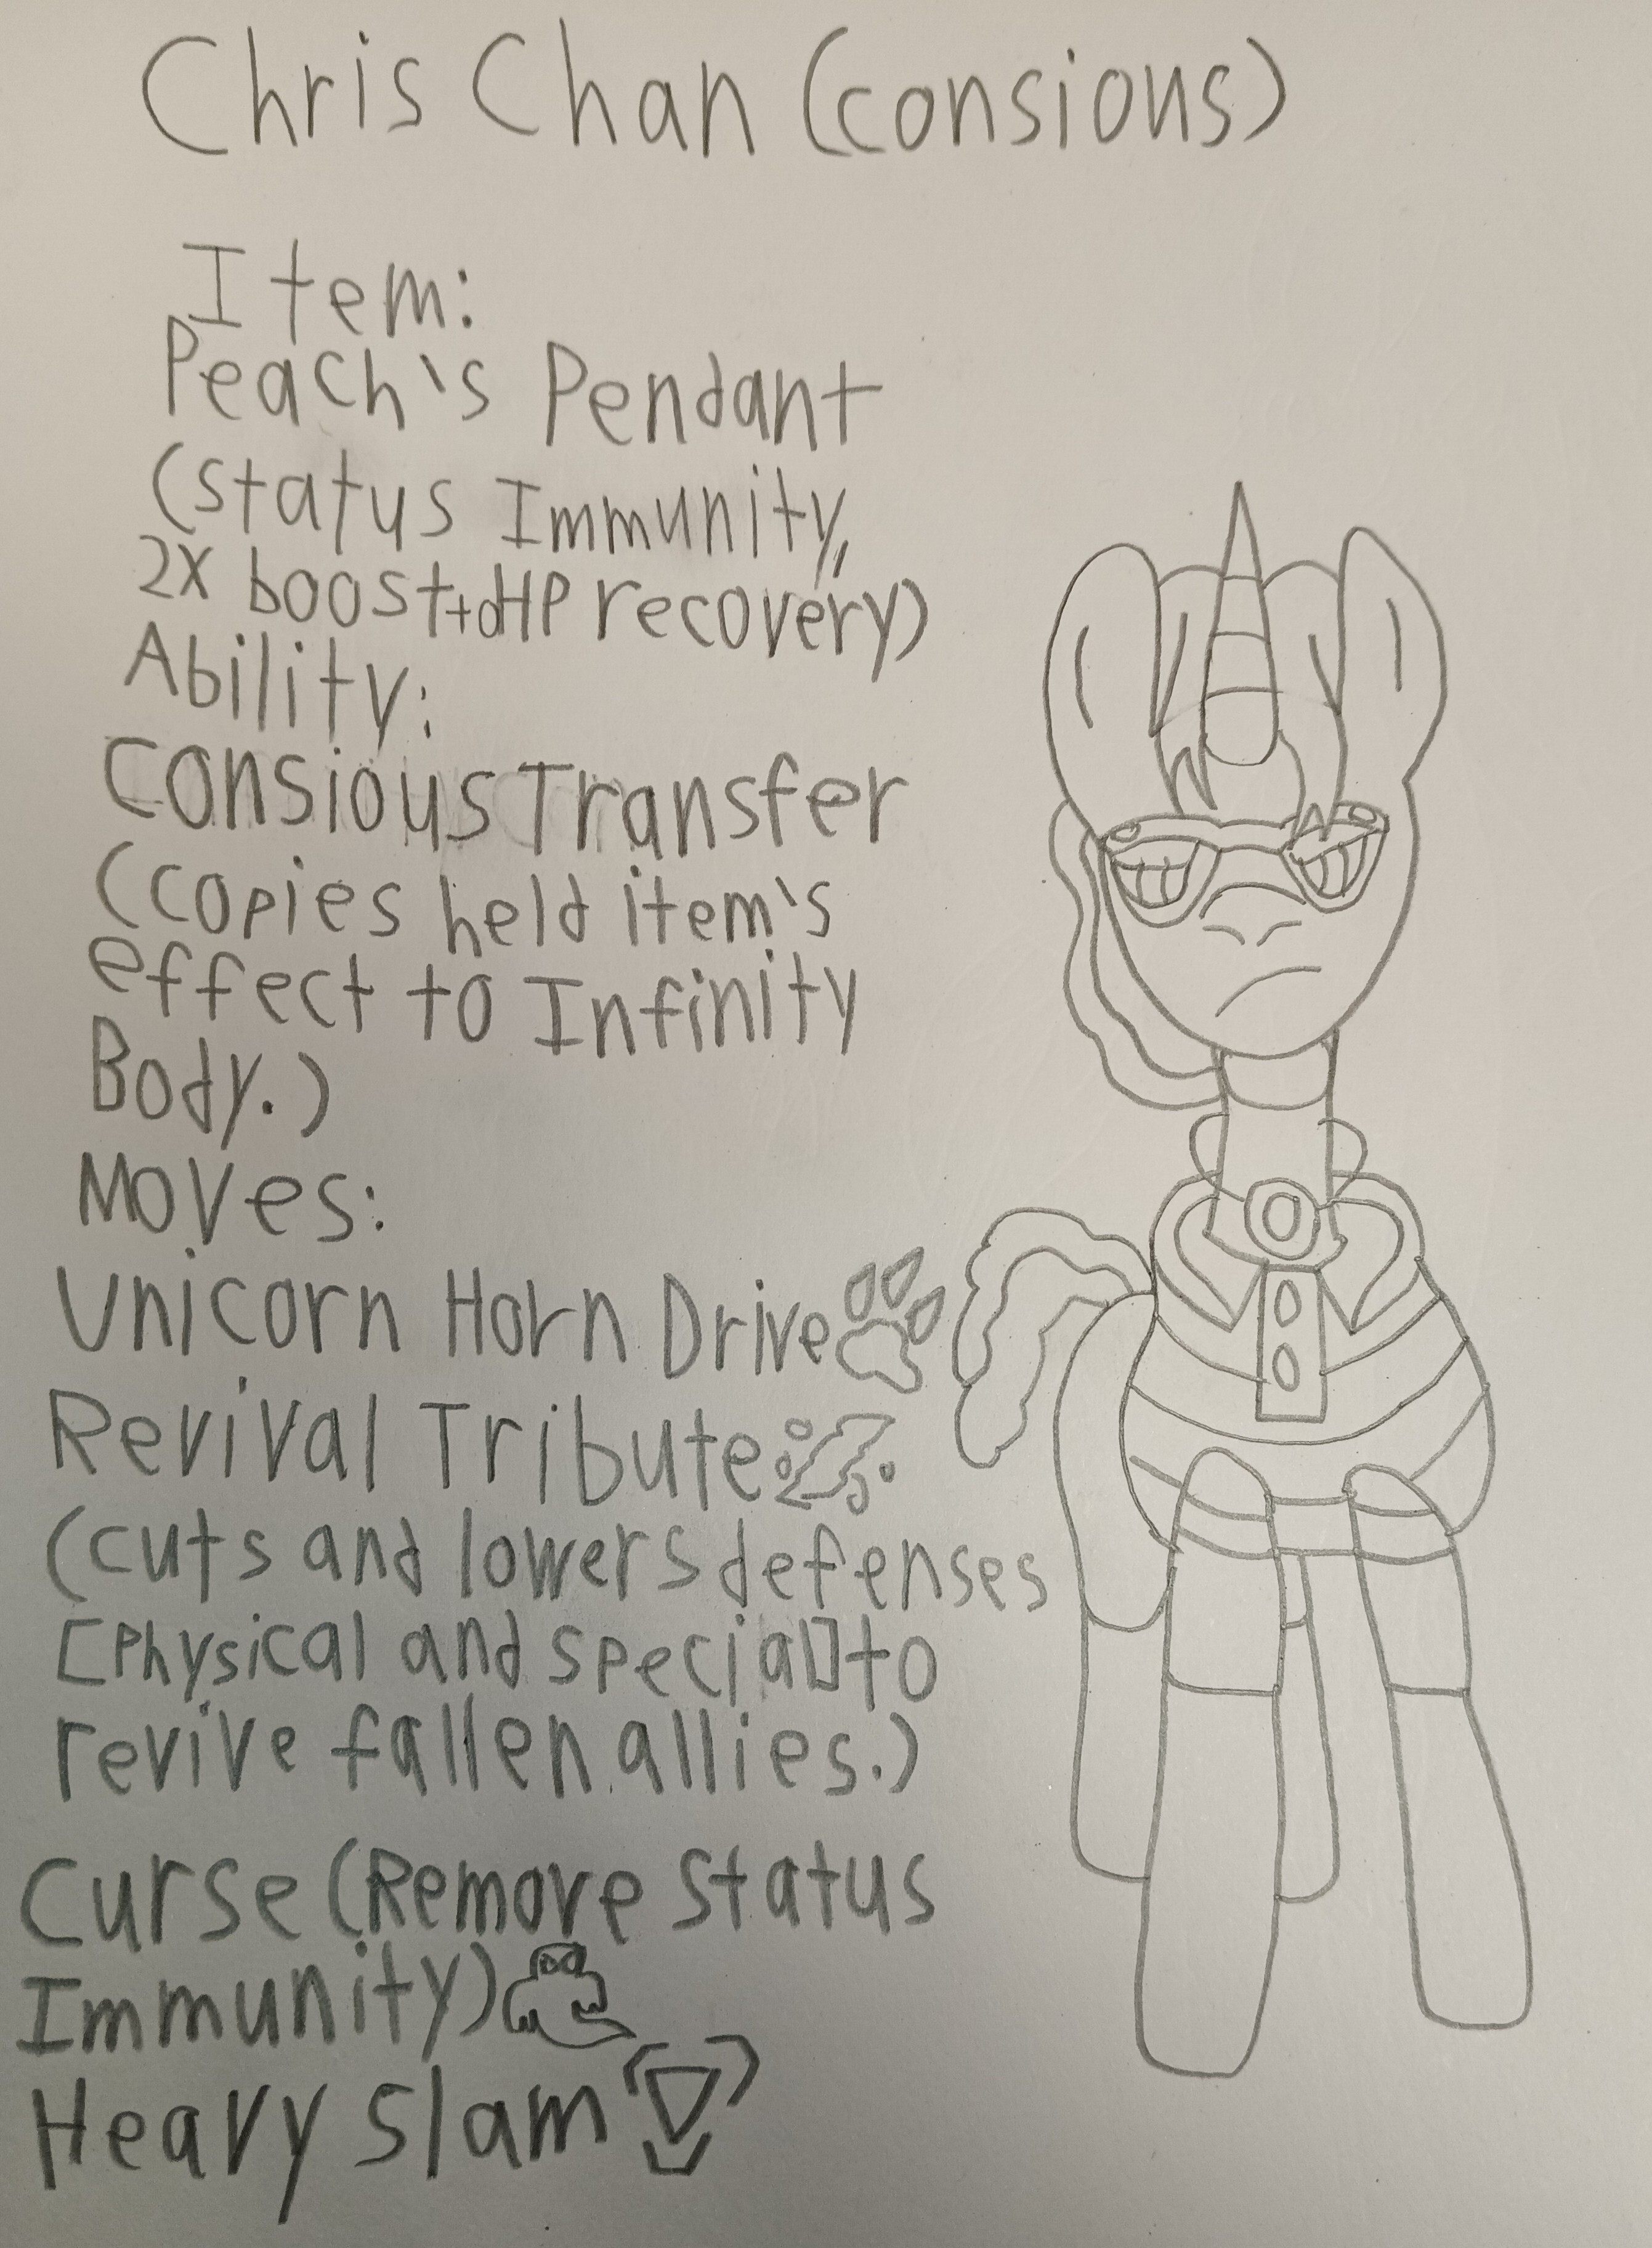 Chris Chan (consious)
Item:
Peach's Pendant
(status Immunity,
2X boost to HP recovery)
Ability:
Consious Transfer
(copies held item's
effect to Infinity
Body.)
Moves:
Unicorn Horn Drive
Revival Tribute
(cuts and lowers defenses
[Physical and special] to
revive fallen allies.)
Curse (Remove Status
Immunity)
Heavy Slam